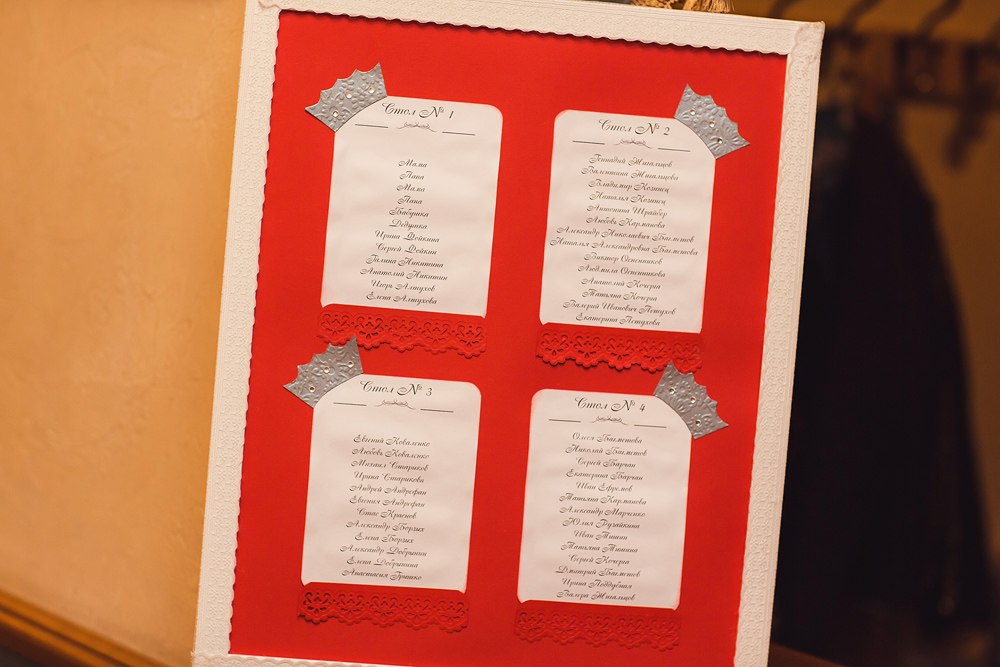 Стол № 1
Мама
Папа
Мама
Папа
Бабушка
Дедушка
Ирина Дейкина
Сергей Дейкин
Галина Никитина
Анатолий Никитин
Игорь Алтухов
Елена Алтухова
Стол № 2
Геннадий Жигальцов
Валентина Жигальцова
Владимир Козинец
Наталья Козинец
Антонина Шрайбер
Любовь Карманова
Александр Николаевич Багметов
Наталья Александровна Багметова
Виктор Огненников
Людмила Огненникова
Анатолий Кочерга
Татьяна Кочерга
Валерий Иванович Петухов
Екатерина Петухова
Стол № 3
Евгений Коваленко
Любовь Коваленко
Михаил Стариков
Ирина Старикова
Андрей Андрефан
Евгения Андрефан
Стас Краснов
Александр Борзых
Елена Борзых
Александр Добрынин
Елена Добрынина
Анастасия Гришко
Стол № 4
Олеся Багметова
Николай Багметов
Сергей Барчан
Екатерина Барчан
Иван Ефремов
Татьяна Карманова
Александр Марченко
Юлия Рузайкина
Иван Тишин
Татьяна Тишина
Сергей Кочерга
Дмитрий Багметов
Ирина Поддубная
Валера Жигальцов